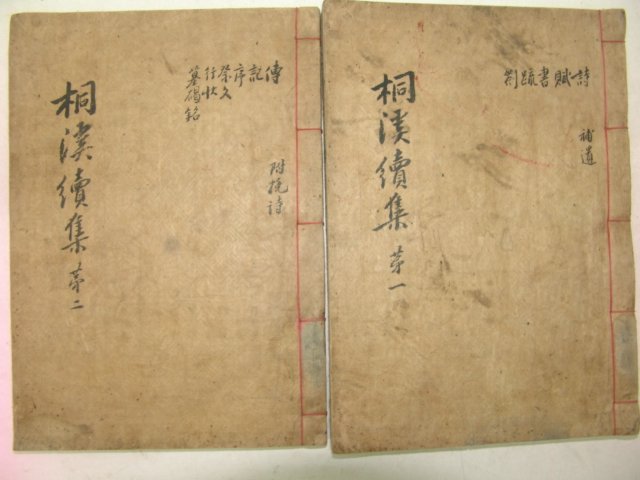 詩賦書疏箚
補遺
桐溪續集 第一
傳記序祭文行狀墓碣銘
附挽詩
桐溪續集 第二